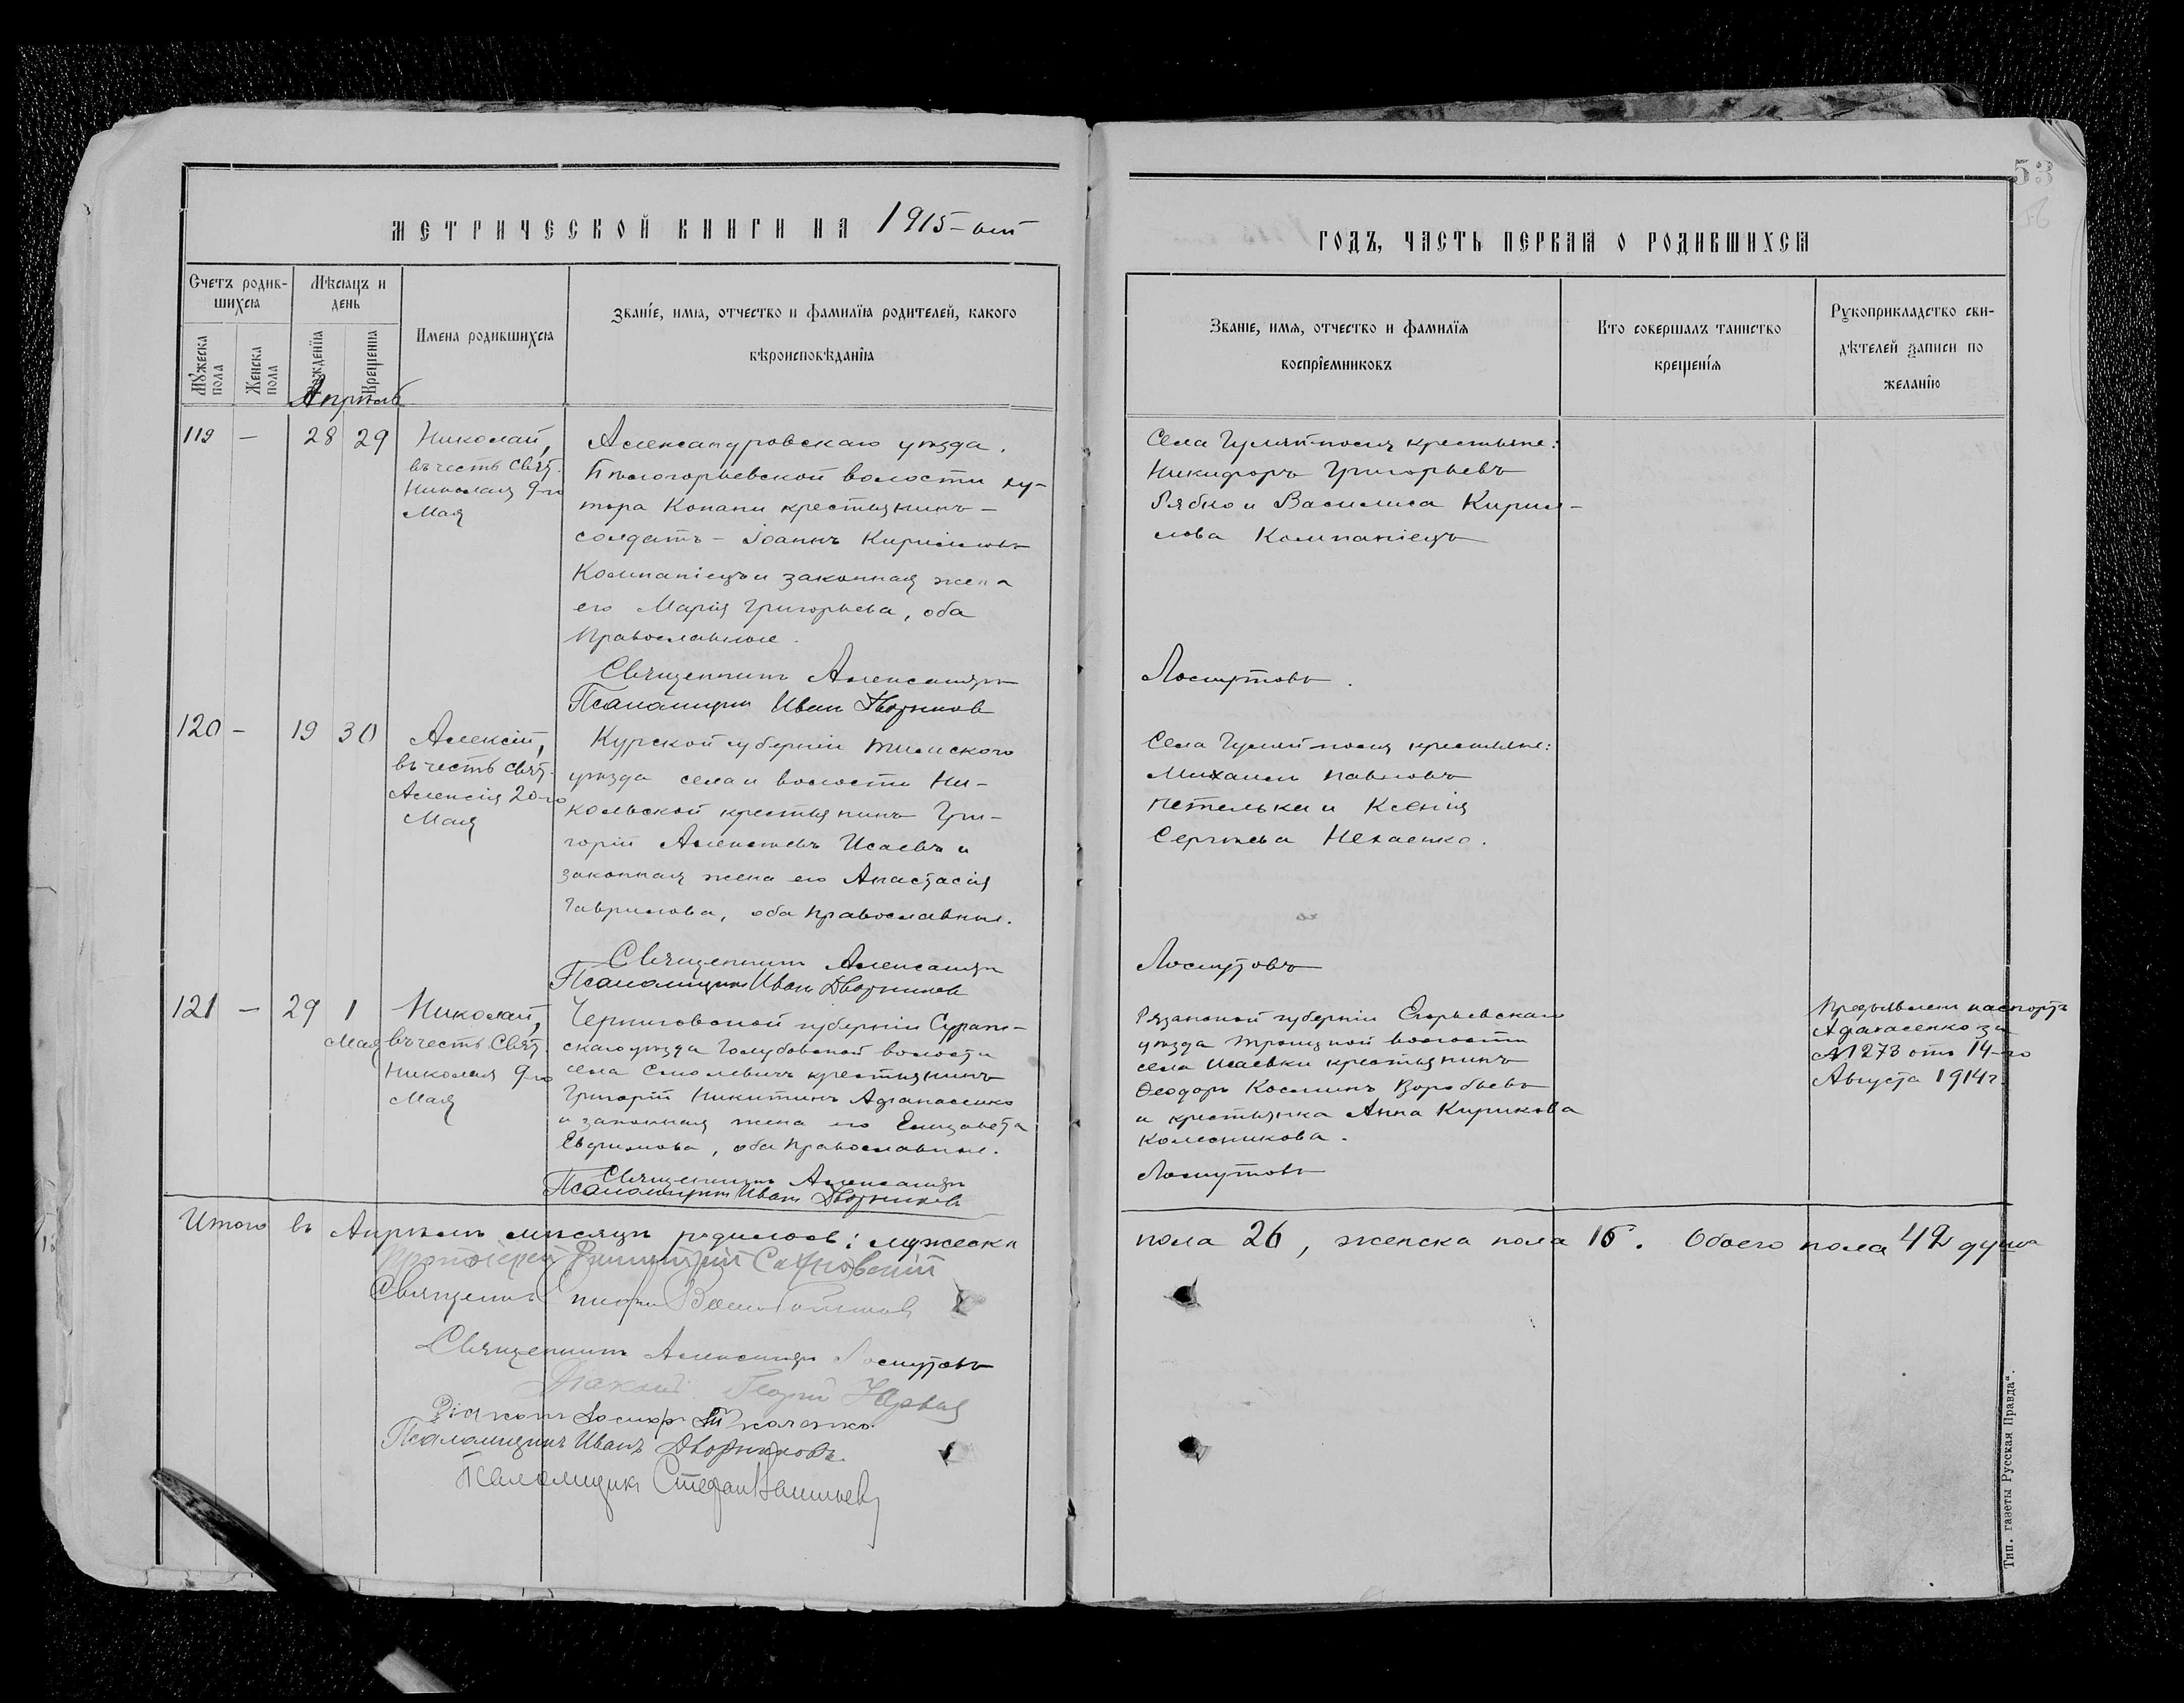 МЕТРИЧЕСКОЙ КНИГИ НА 1915-ый
Счетъ родив-
шихся
Мѣсяцъ и
день
Мужеска
пола
Женска
пола
Рожденія
Крещенія
Имена родившихся
Званіе, имя, отчество и фамилія родителей, какого
вѣроисповѣданія
Апрѣль
119 — 28 29
Николай,
въ честь Свят.
Николая 9-го
Мая
Александровскаго уѣзда.
волости ху-
тора Копани крестьянинъ -
солдатъ - Іоаннъ Кирилловъ
Компаніецъ и законная жена
его Марія Григорьева, оба
православные.
Священникъ Александръ
Псаломщикъ Иван Дворников
120 - 19 30
Алексій,
въ честь Свят.
Алексія 20-го
Мая
Курской губерніи Тимского
уѣзда села и волости Ни-
кольской крестьянинъ Гри-
горій Алексѣевъ Исаевъ и
законная жена его Анастасія
Гаврилова, оба православные.
Священникъ Александръ
Псаломщикъ Иванъ Дворников
121 — 29 1
Мая
Николай,
въ честь Свят.
Николая 9-го
Мая
Черниговской губерніи Сураж-
скаго уѣзда Голубовской волости
села Смолевичъ крестьянинъ
Григорій Никитинъ Афанасенко
и законная жена его Елизавета
Евфимова, оба православные.
Священникъ Александръ
Псаломщикъ Иванъ Дворников
Итого въ Апрѣлѣ мѣсяцѣ родилось: мужеска
Протоіерей Димитрій
Священникъ
Священникъ Александръ Лоскутовъ
Діаконъ Георгій
Діаконъ
Псаломщикъ Иванъ Дворниковъ.
Псаломщикъ Стефан
53
ГОДЪ, ЧАСТЬ ПЕРВАЯ О РОДИВШИХСЯ
Званіе, имя, отчество и фамилія
воспріемниковъ
Кто совершалъ таинство
крещенія
Рукоприкладство сви-
дѣтелей записи по
желанію
Села Гуляй-поля крестьяне:
Никифоръ Григорьевъ
Рябко и Василиса Кирил-
лова Компаніецъ
Лоскутовъ.
Села Гуляй-поля крестьяне:
Михаилъ Павловъ
Петелька и Ксенія
Сергѣева Нехаенко.
Лоскутовъ
Рязанской губерніи Егорьевскаго
уѣзда Троицкой волости
села Исаевки крестьянинъ
Ѳеодоръ Косминъ Воробьевъ
и крестьянка Анна Кирикова
Колесникова.
Лоскутовъ
Предъявленъ паспортъ
Афанасенко за
№ 1273 отъ 14-го
Августа 1914 г.
пола 26, женска пола 16. Обоего пола 42 душа
Тип. газеты Русская Правда“.